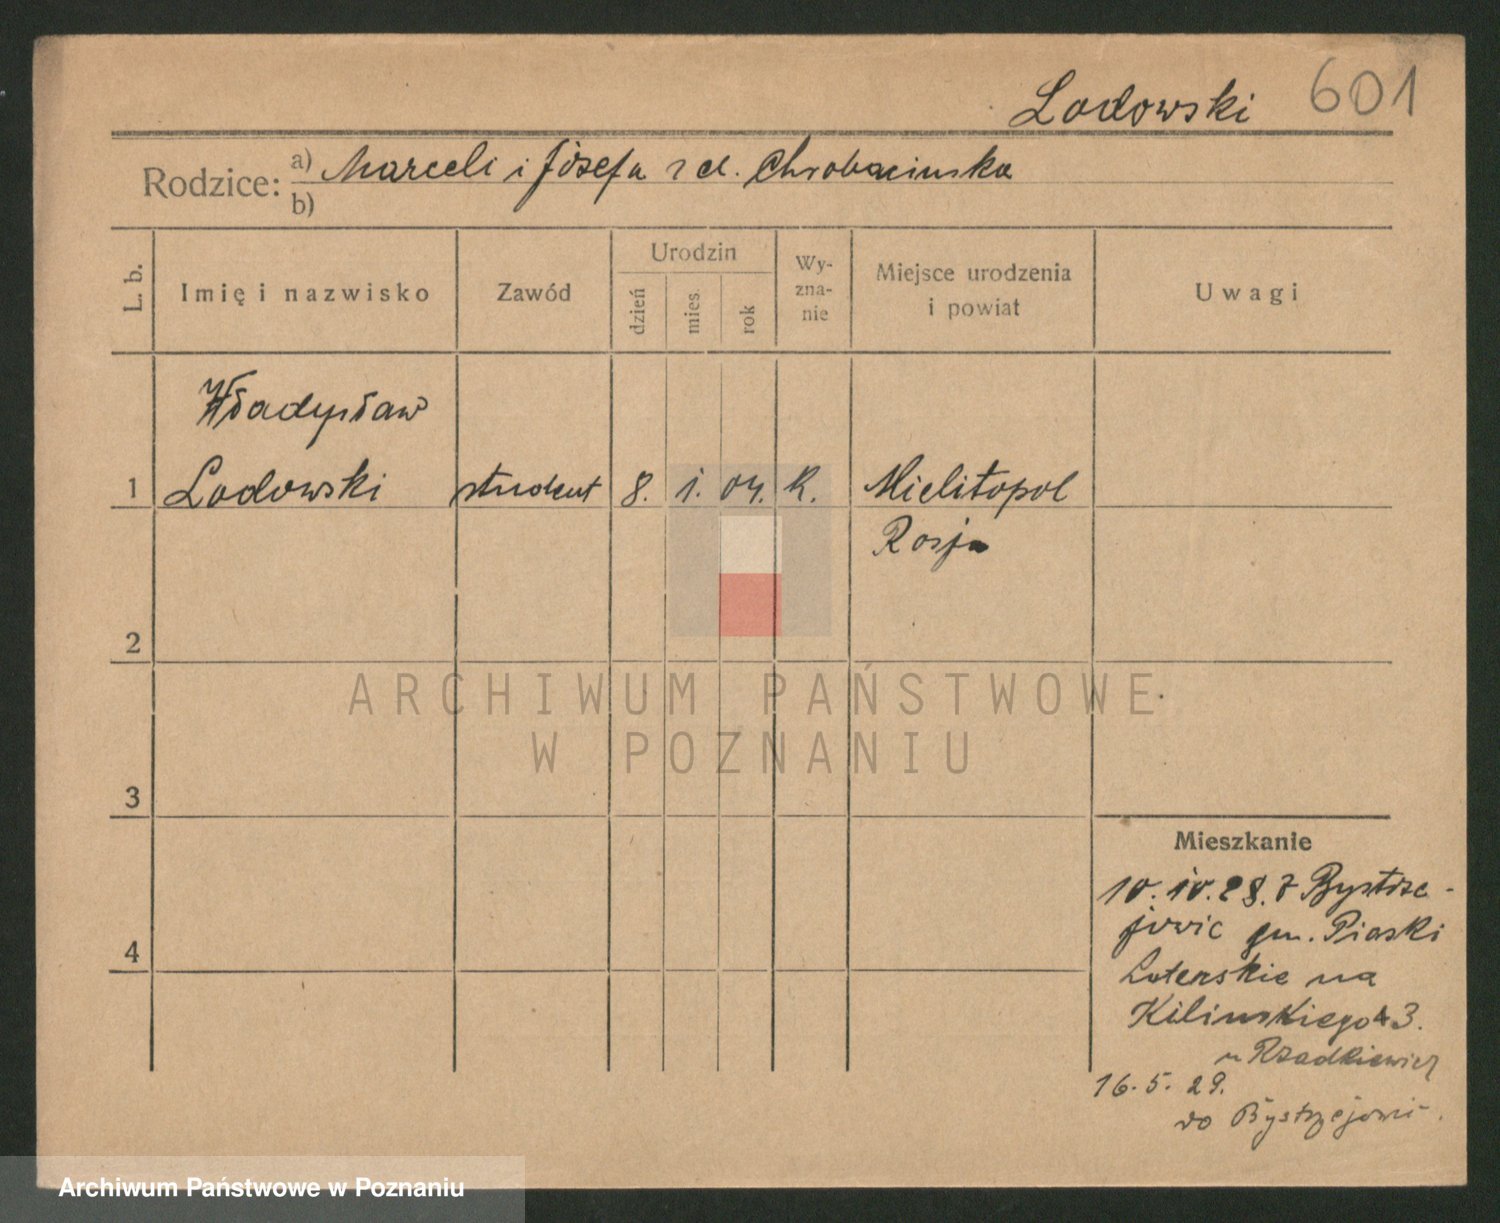 Lodowski 601
Rodzice: a) Marceli i Józefa z d. Chrobacinska
b)
L. b. Imię i nazwisko Zawód Urodzin dzień mies. rok Wy-zna-nie Miejsce urodzenia i powiat Uwagi
Władysław
1 Lodowski student 8. 1. 04. R. Mielitopol
Rosja
2
ARCHIWUM PAŃSTWOWE
W POZNANIU
3
Mieszkanie
10.IV.28. z Bystrze-
4 jowic gm. Piaski
Luterskie na
Kilinskiego 3.
u Rzadkiewicz
16. 5. 29.
do Bystrzejowic.
Archiwum Państwowe w Poznaniu